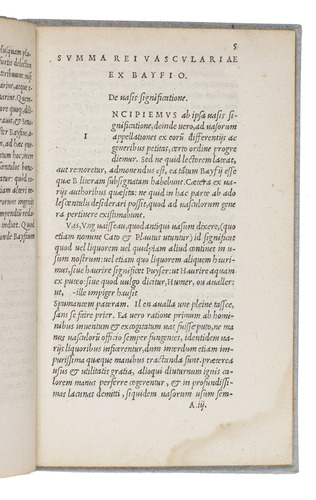 5
SVMMA REI VASCVLARIAE
EX BAYFIO.
De uasis significatione.
I
NCIPIEMVS ab ipsa uasis si-
gnificatione, deinde uero, ad uasorum
appellationes ex eorū differentijs ac
generibus petitas, certo ordine progre
diemur. Sed ne quid lectorem lateat,
aut remoretur, admonendus est, ea titulum Bayfij esse
quæ B literam subsignatam habebunt. Cætera ex ua-
rijs authoribus quæsita: ne quid in hac parte ab ado
lescentulis desiderari possit, quod ad uasculorum gene
ra pertinere existimabunt.
Vas, Vng uaisseau, quod antiqui uasum dixere, (quo
etiam nomine Cato & Plautus utuntur) id significat
quod uel liquorem uel quiduiam aliud continet in u-
sum nostrum: uel etiam quo liquorem aliquem hauri-
mus, siue haurire significet Puyser: ut Haurire aquam
ex puteo: siue quod uulgo dicitur, Humer, ou auallert
ut, -ille impiger hausit
Spumantem pateram. Il en aualla une pleine tassee,
sans se faire prier. Ea uero ratione primum ab homi-
nibus inuentum & excogitatum uas fuisse puto, ne ma
nus uasculorū officio semper fungentes, identidem ua-
rijs liquoribus inficerentur, dum interdum etiam im-
purissima quæque manibus tractanda sunt. præterea
usus & utilitatis gratia, alioqui diuturnum ignis ca-
lorem manus perferre cogerentur, & in profundissi-
mas lacunas demitti, siquidem uasorum usum sem-
A.iij.